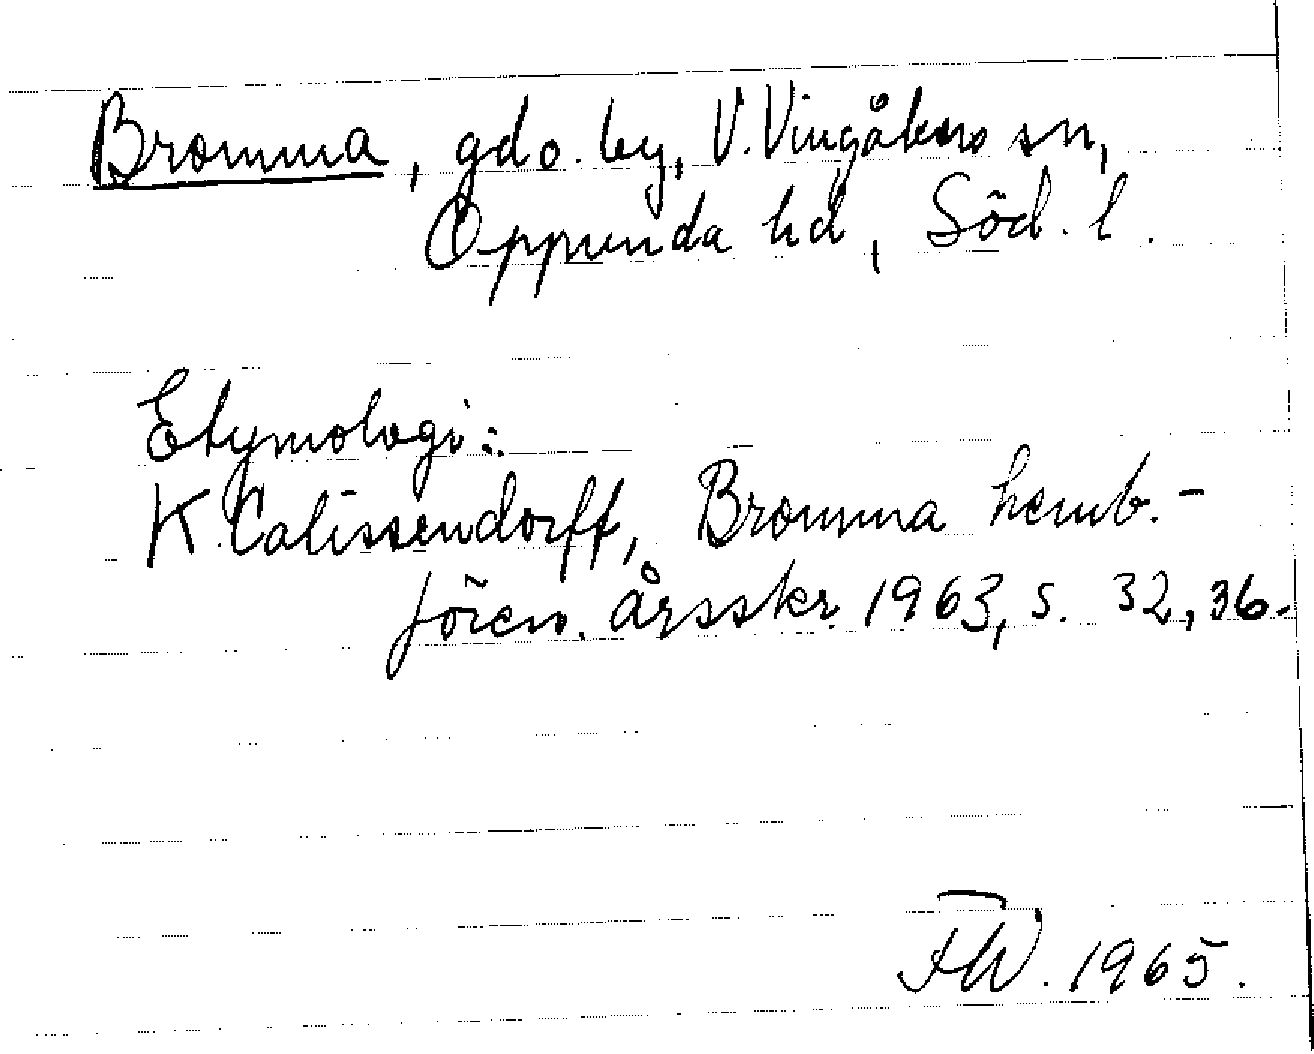 Bromma, gd o. by, V. Vingåkers sn,
Oppunda hd, Söd. l.
Etymologi:
K. Calissendorff, Bromma hemb.-
fören. årsskr. 1963, s. 32, 36.
FW. 1965.